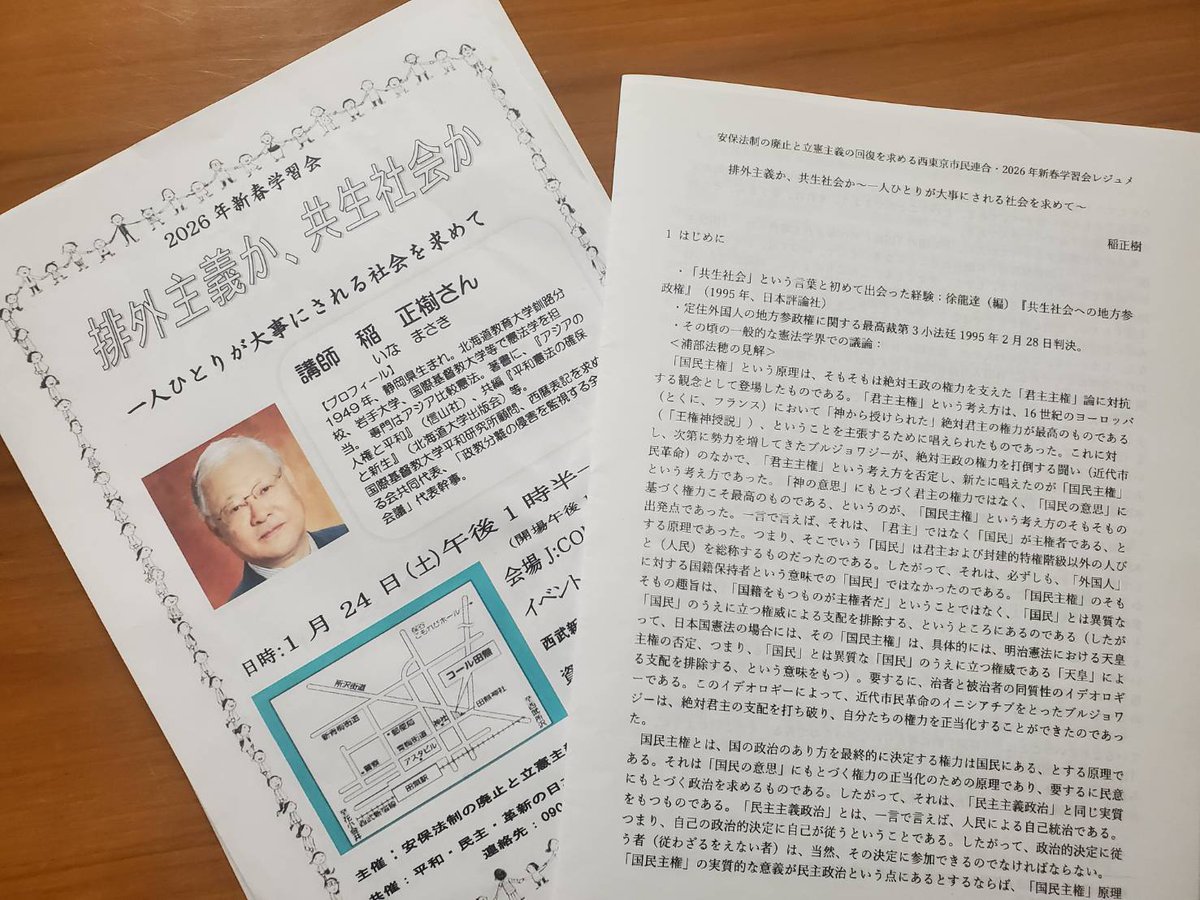 2026年新春学習会
排外主義か、共生社会か
一人ひとりが大事にされる社会を求めて
講師 稲 正樹さん
いな まさき
【プロフィール】
1949年、静岡県生まれ。北海道教育大学釧路分
校、岩手大学、国際基督教大学等で憲法学を担
当。専門はアジア比較憲法。著書に、『アジアの
人権と平和』(信山社)、共編『平和憲法の確保
と新生』(北海道大学出版会)等。
国際基督教大学平和研究所顧問、西暦表記を求め
る会共同代表、「政教分離の侵害を監視する全
会議」代表幹事。
日時:1月24日(土)午後1時半～
(開場午後
会場 J:CO
イベント
西武新
資
保谷こもれびホール
コール田無
所沢街道
新青梅街道
郵便局
神社
田無神社
青梅街道
アスタビル
警察
田無駅
西武新宿線
主催:安保法制の廃止と立憲主
共催:平和・民主・革新の日
連絡先:090
安保法制の廃止と立憲主義の回復を求める西東京市民連合・2026年新春学習会レジュメ
排外主義か、共生社会か～一人ひとりが大事にされる社会を求めて～
稲正樹
1 はじめに
・「共生社会」という言葉と初めて出会った経験:徐龍達(編)『共生社会への地方参
政権』(1995年、日本評論社)
・定住外国人の地方参政権に関する最高裁第3小法廷1995年2月28日判決。
・その頃の一般的な憲法学界での議論:
＜浦部法穂の見解＞
「国民主権」という原理は、そもそもは絶対王政の権力を支えた「君主主権」論に対抗
する観念として登場したものである。「君主主権」という考え方は、16世紀のヨーロッパ
(とくに、フランス)において「神から授けられた」絶対君主の権力が最高のものである
(「王権神授説」)、ということを主張するために唱えられたものであった。これに対
し、次第に勢力を増してきたブルジョワジーが、絶対王政の権力を打倒する闘い(近代市
民革命)のなかで、「君主主権」という考え方を否定し、新たに唱えたのが「国民主権」
という考え方であった。「神の意思」にもとづく君主の権力ではなく、「国民の意思」に
基づく権力こそ最高のものである、というのが、「国民主権」という考え方のそもそもの
出発点であった。一言で言えば、それは、「君主」ではなく「国民」が主権者である、と
する原理であった。つまり、そこでいう「国民」は君主および封建的特権階級以外の人び
と(人民)を総称するものだったのである。したがって、それは、必ずしも、「外国人」
に対する国籍保持者という意味での「国民」ではなかったのである。「国民主権」のそも
そもの趣旨は、「国籍をもつものが主権者だ」ということではなく、「国民」とは異質な
「国民」のうえに立つ権威による支配を排除する、というところにあるのである(したが
って、日本国憲法の場合には、その「国民主権」は、具体的には、明治憲法における天皇
主権の否定、つまり、「国民」とは異質な「国民」のうえに立つ権威である「天皇」によ
る支配を排除する、という意味をもつ)。要するに、治者と被治者の同質性のイデオロギ
ーである。このイデオロギーによって、近代市民革命のイニシアチブをとったブルジョワ
ジーは、絶対君主の支配を打ち破り、自分たちの権力を正当化することができたのであっ
た。
国民主権とは、国の政治のあり方を最終的に決定する権力は国民にある、とする原理で
ある。それは「国民の意思」にもとづく権力の正当化のための原理であり、要するに民意
にもとづく政治を求めるものである。したがって、それは、「民主主義政治」と同じ実質
をもつものである。「民主主義政治」とは、一言で言えば、人民による自己統治である。
つまり、自己の政治的決定に自己が従うということである。したがって、政治的決定に従
う者(従わざるをえない者)は、当然、その決定に参加できるのでなければならない。
「国民主権」の実質的な意義が民主政治という点にあるとするならば、「国民主権」原理